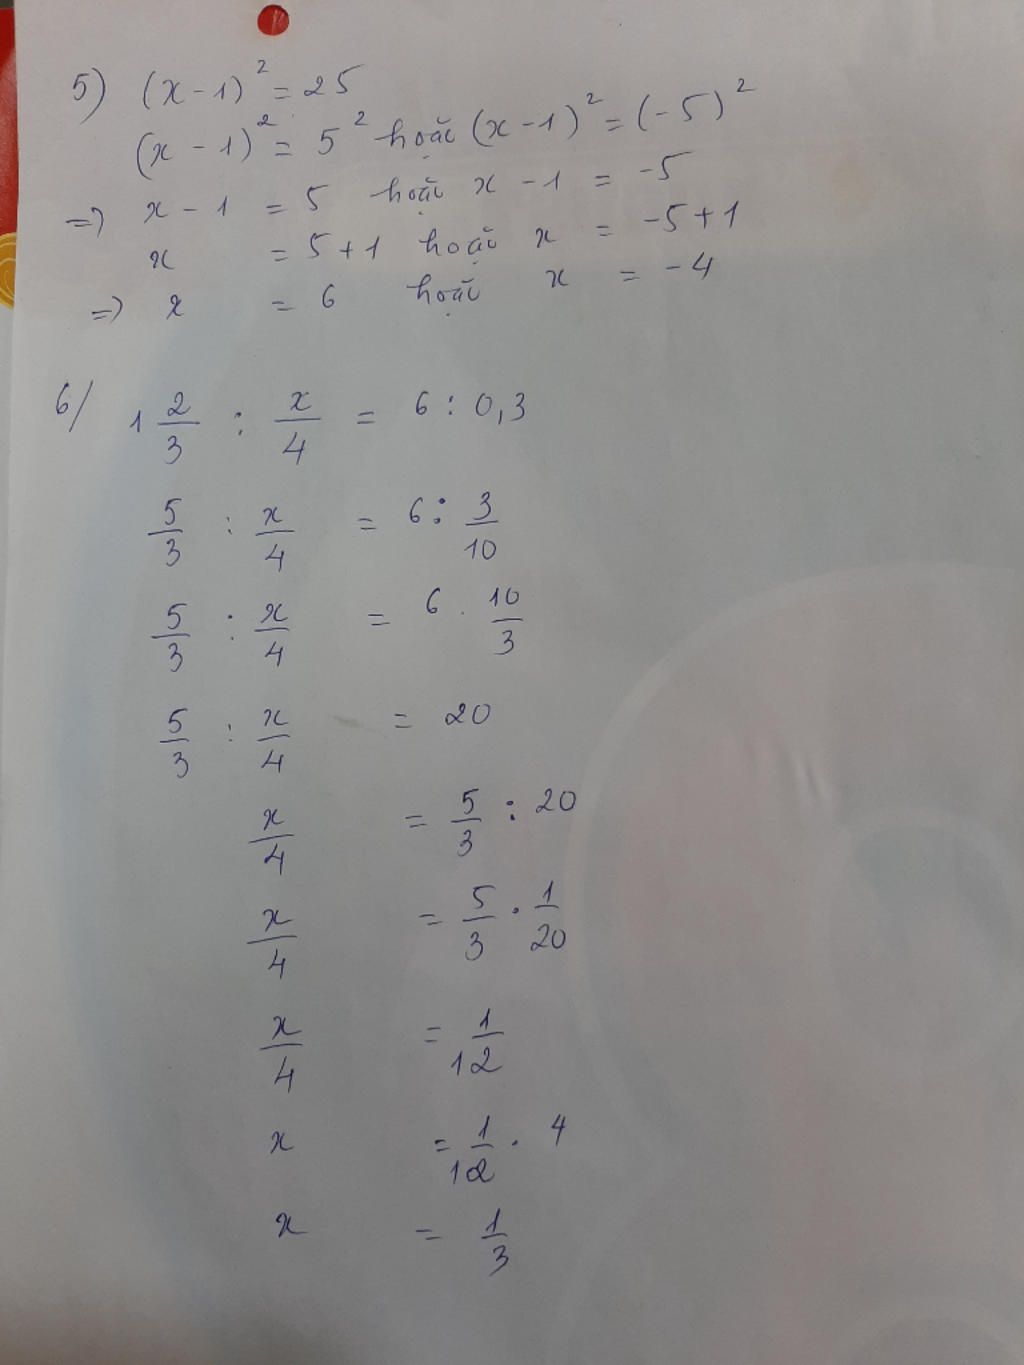 5) (x - 1)² = 25
(x - 1)² = 5² hoặc (x - 1)² = (-5)²
=> x - 1 = 5 hoặc x - 1 = -5
x = 5 + 1 hoặc x = -5 + 1
=> x = 6 hoặc x = -4
6/ 1 2/3 : x/4 = 6 : 0,3
5/3 : x/4 = 6 : 3/10
5/3 : x/4 = 6 . 10/3
5/3 : x/4 = 20
x/4 = 5/3 : 20
x/4 = 5/3 . 1/20
x/4 = 1/12
x = 1/12 . 4
x = 1/3